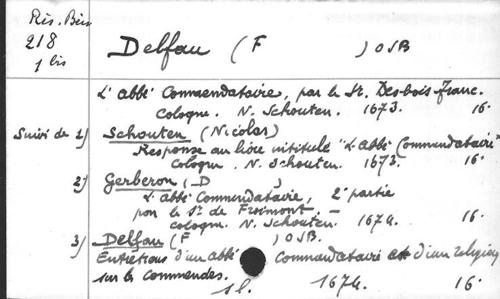 Rés. Bév
218
1 bis
Delfau (F ) OSB
L'abbé Commendataire, par le Sr. Desbois-Franc.
Cologne. N. Schouten. 1673. 16°
Suivi de 1) Schouten (Nicolas)
Response au livre intitulé "L'abbé Commendataire"
Cologne. N. Schouten. 1673. 16°
2) Gerberon (D )
L'abbé Commendataire, 2e partie
par le Sr de Froimont –
Cologne. N. Schouten. 1674. 16°
3) Delfau (F ) OSB.
Entretiens d'un abbé Commendataire et d'un religieux
sur les commendes.
s l. 1674. 16°